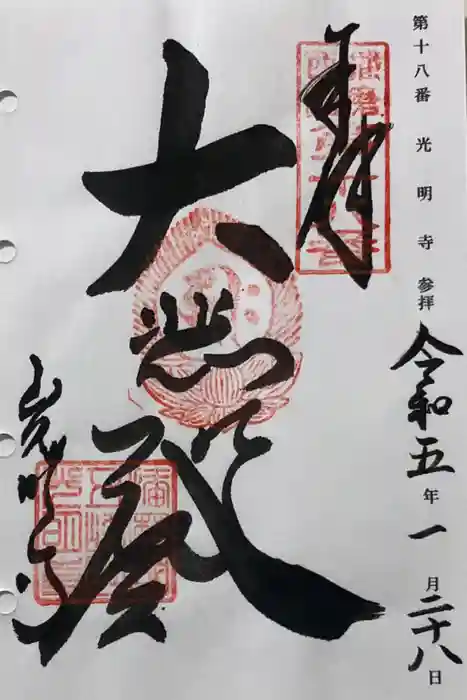 第十八番 光明寺 参拝
令和五年一月二十八日
奉拝
大悲殿
光明寺